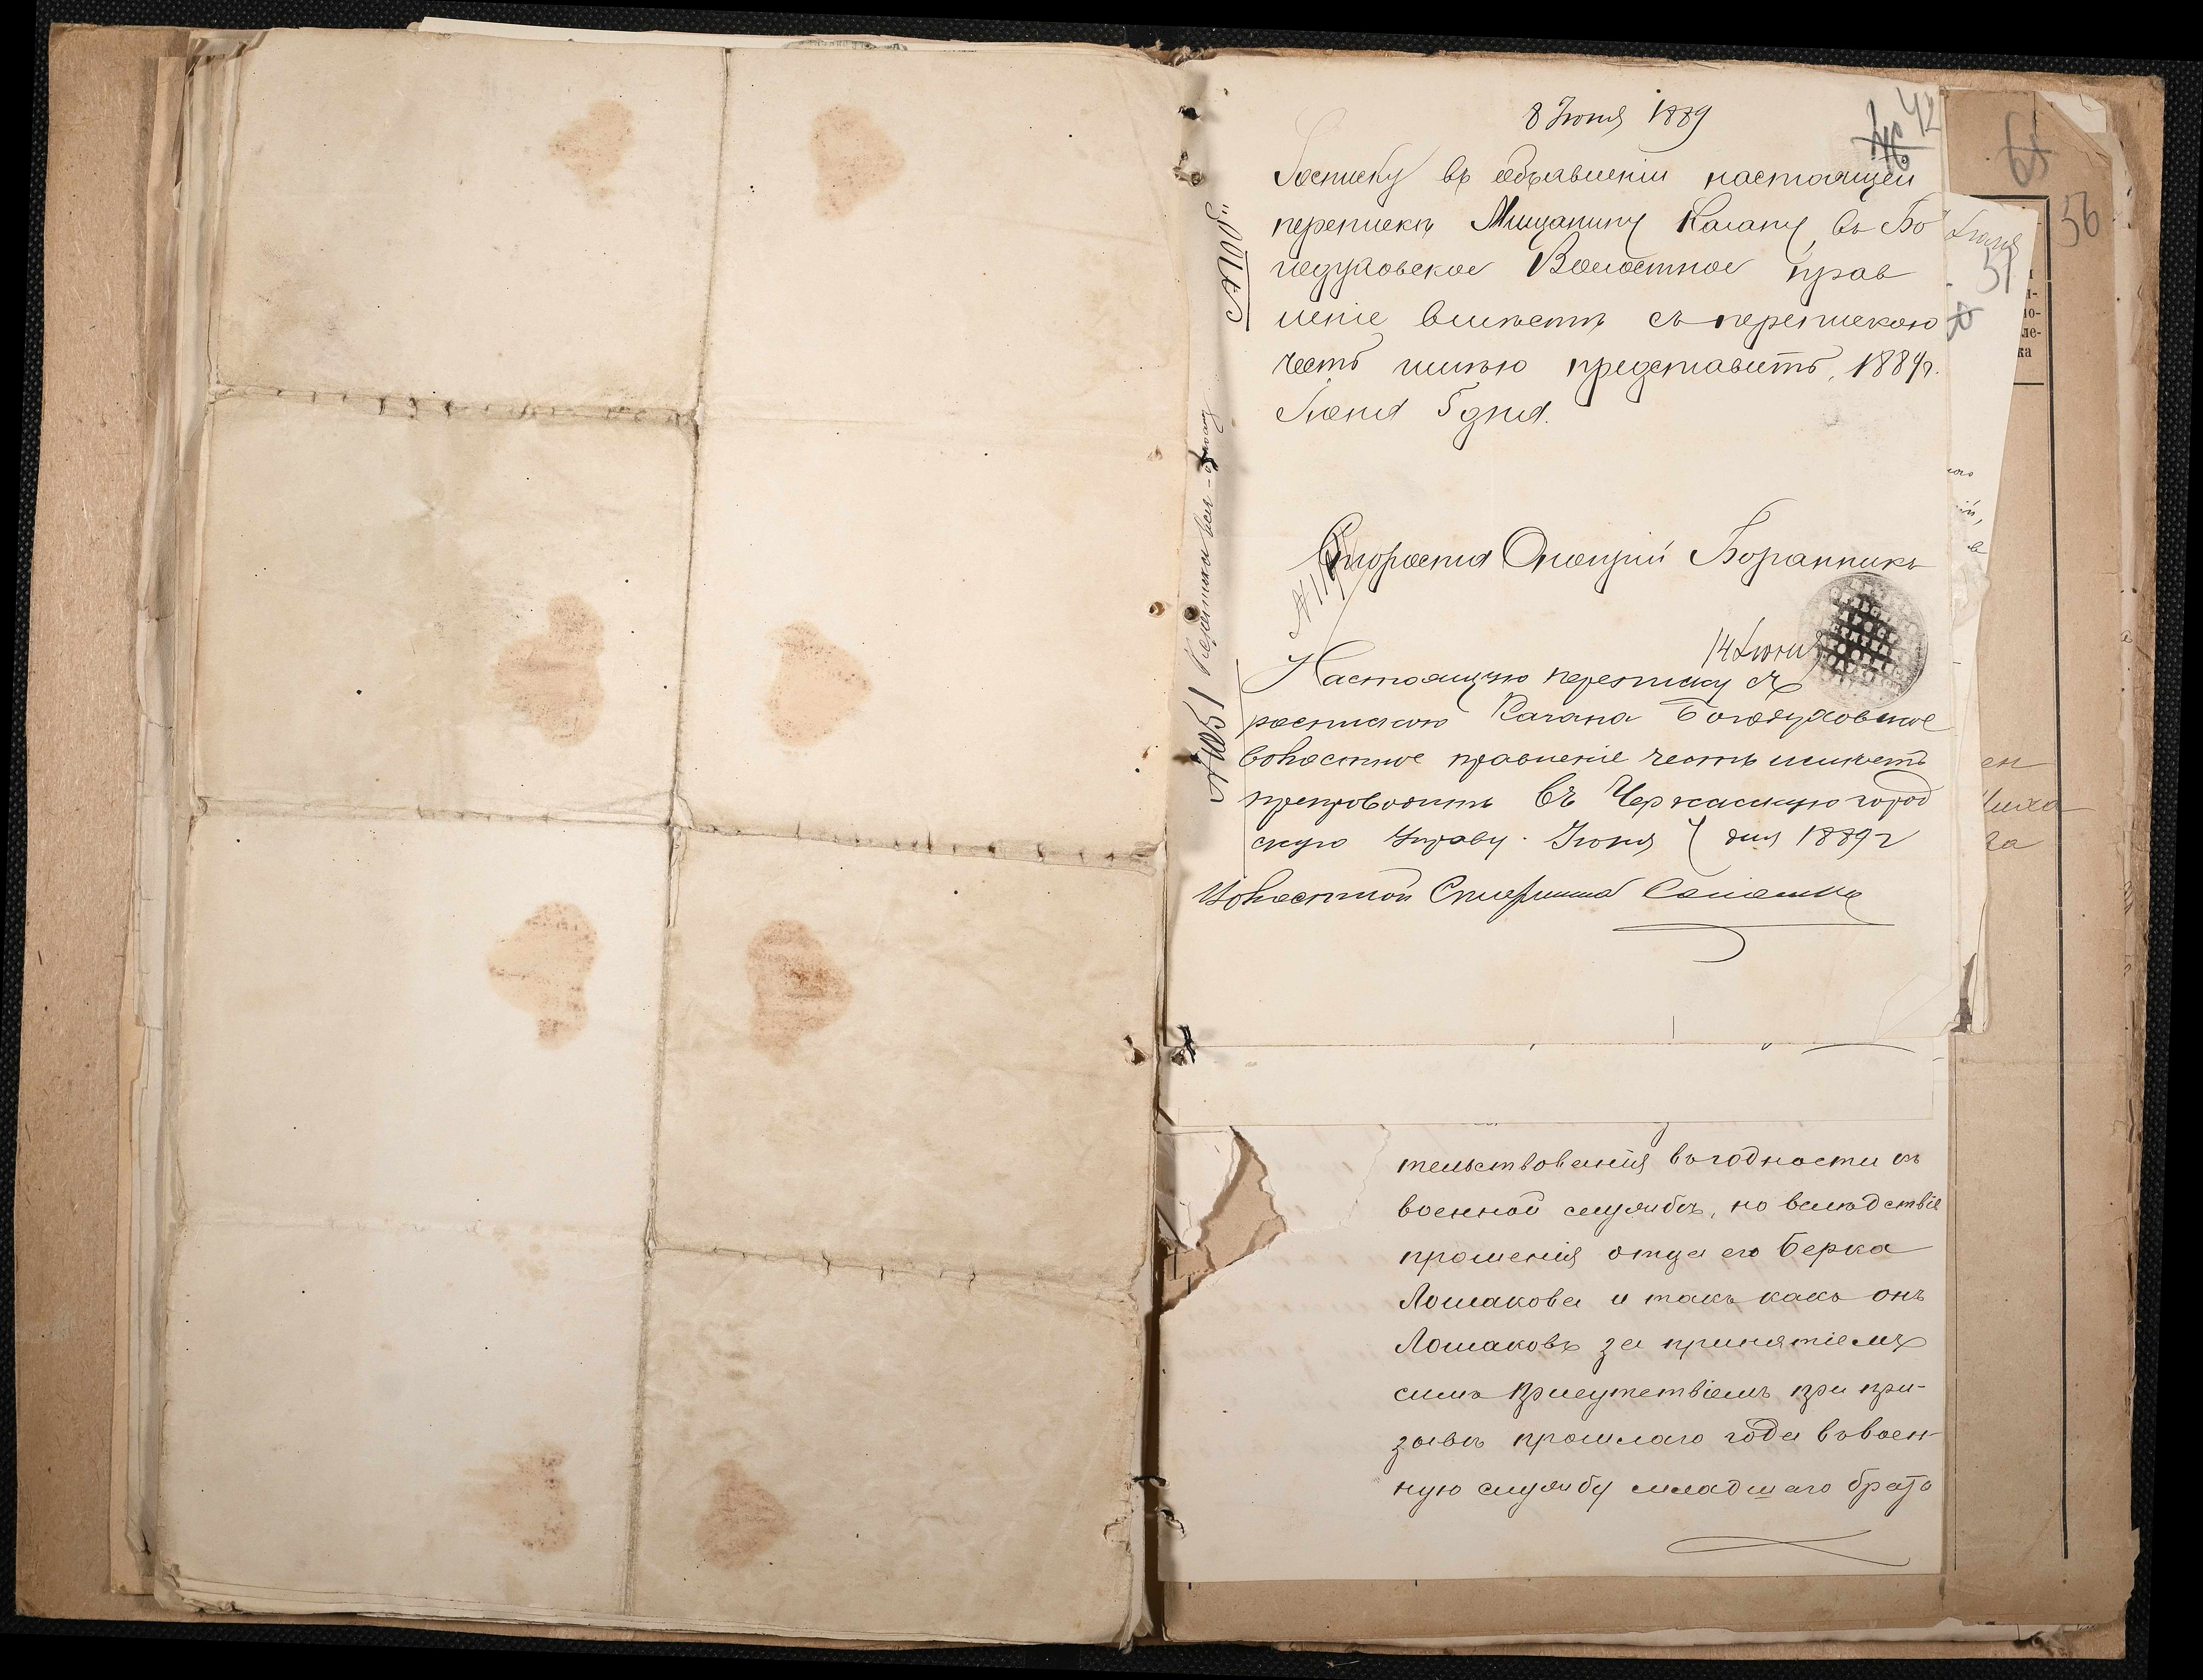 8 Іюня 1889
42
Росписку въ объявленіи настоящей
переписки Мищанину Кагану, въ Бо
годуховское Волостное прав
леніе вмѣстѣ съ перепискою
честь имѣю представить, 1889 г.
Іюня 5 дня.
Староста Онопрій Боранникъ
14 Іюня
Настоящую переписку съ
роспискою Кагана Богодуховское
волостное правленіе честь имѣетъ
препроводить въ Черкасскую город
скую Управу. Іюня 7 дня 1889 г
Волостной Старшина
№ 1051
56
51
тельствованія въ годности къ
военной службѣ, но вслѣдствіе
прошенія отца его Берка
Лошакова и такъ какъ онъ
Лошаковъ за принятіемъ
симъ Присутствіемъ при при-
зывѣ прошлаго года въ воен-
ную службу младшаго брата